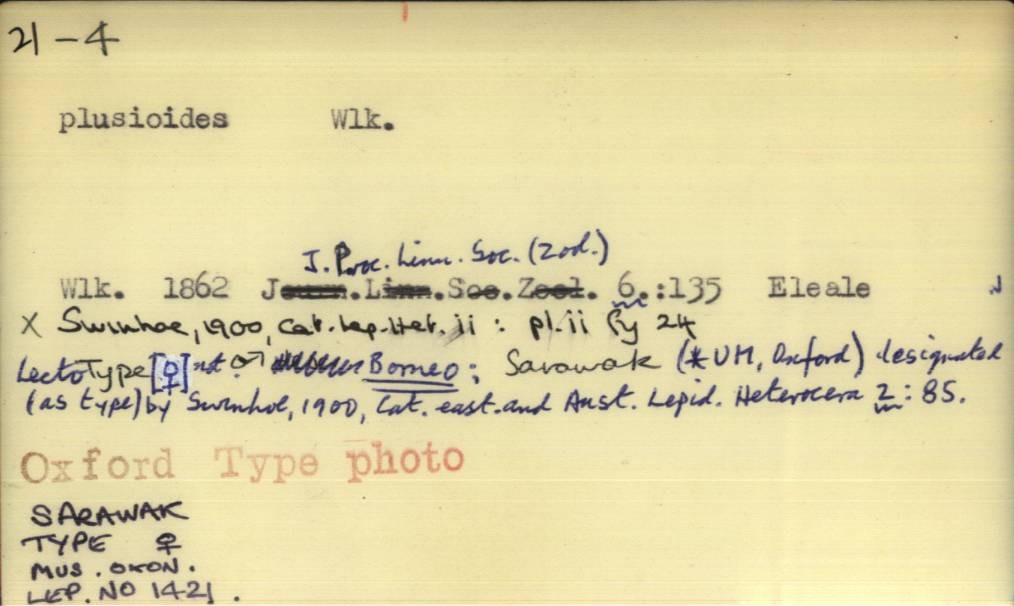 21-4
plusioides Wlk.
J. Proc. Linn. Soc. (Zool.)
Wlk. 1862 Journ.Linn.Soc.Zool. 6.:135 Eleale
X Swinhoe, 1900, Cat. Lep. Het. ii : pl. ii fig 24
LectoType [♀] not ♂ Borneo; Sarawak (*UM, Oxford) designated
(as type) by Swinhoe, 1900, Cat. east. and Aust. Lepid. Heterocera 2: 85.
Oxford Type photo
SARAWAK
TYPE ♀
MUS. OXON.
LEP. NO 1421.